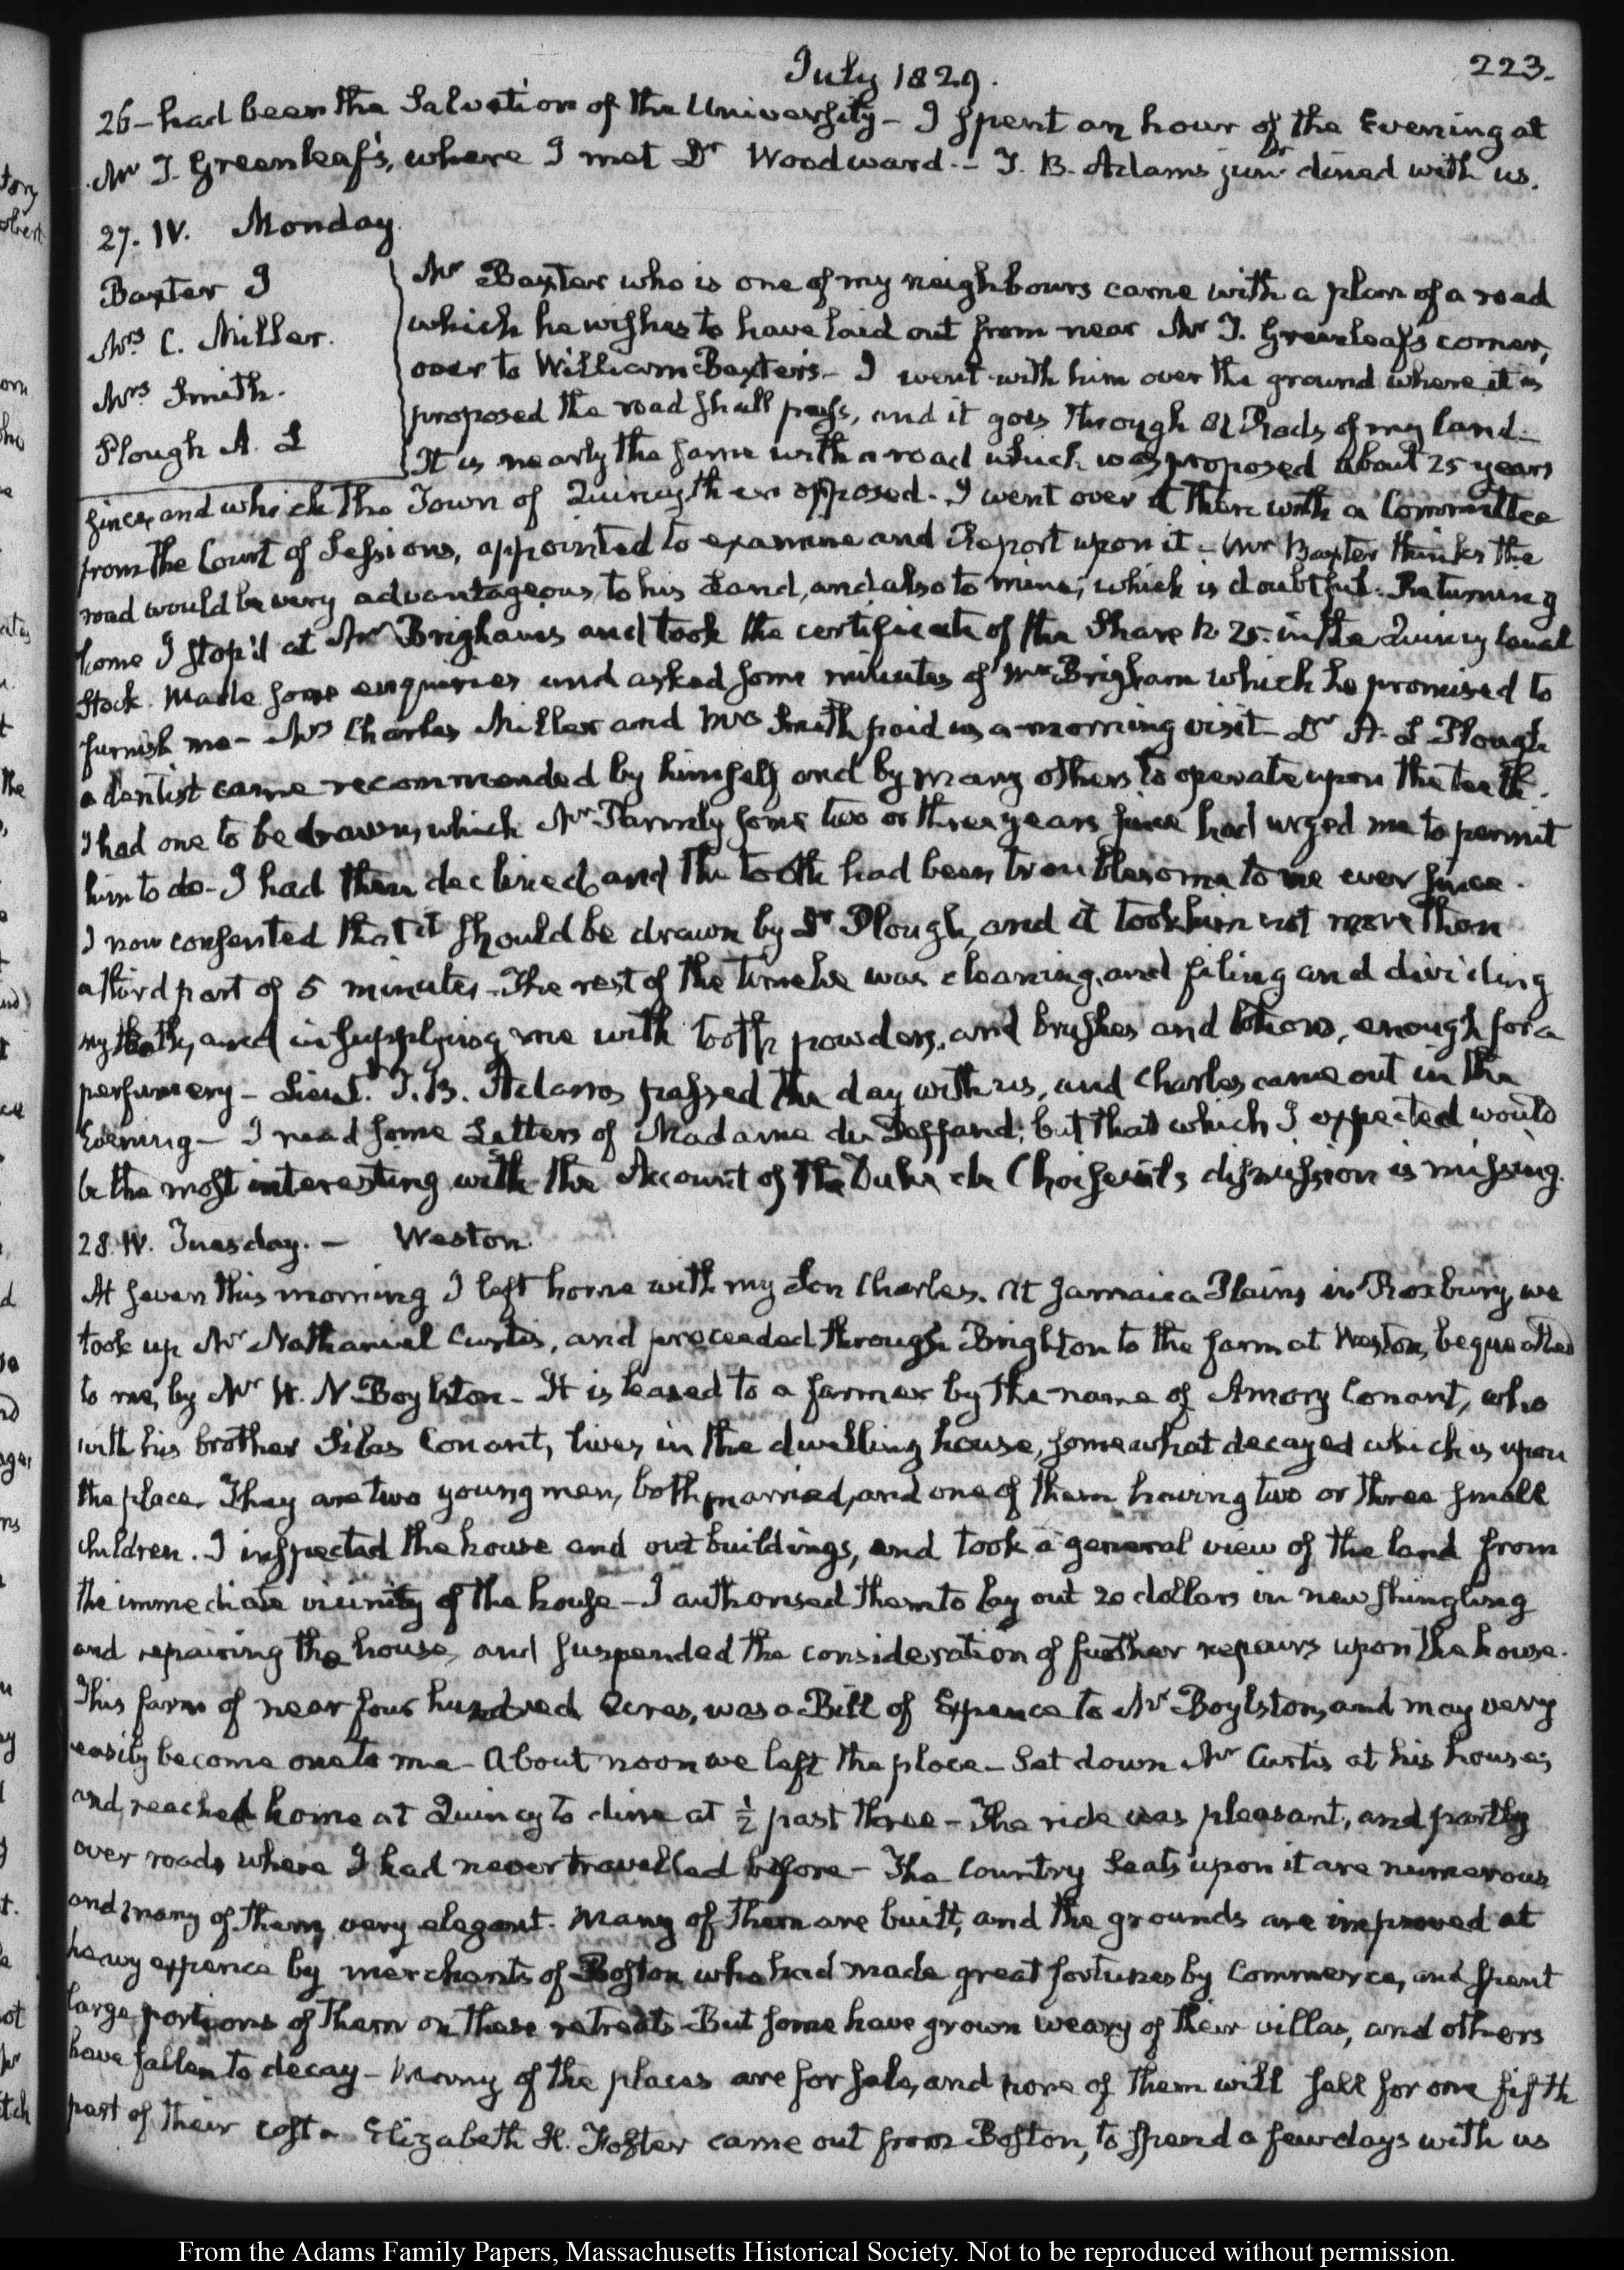 July 1829.
223.
26 - had been the Salvation of the University - I spent an hour of the Evening at
Mr T. Greenleaf's, where I met Dr Woodward. - T. B. Adams junr. dined with us.
27. IV. Monday.
Baxter J
Mrs. C. Miller.
Mrs Smith.
Plough A. L
Mr Baxter who is one of my neighbours came with a plan of a road
which he wishes to have laid out from near Mr T. Greenleaf's corner,
over to William Baxter's - I went with him over the ground where it is
proposed the road shall pass, and it goes through 82 Rods of my land -
It is nearly the same with a road which was proposed about 25 years
since, and which the Town of Quincy then opposed. I went over it then with a Committee
from the Court of Sessions, appointed to examine and Report upon it - Mr Baxter thinks the
road would be very advantageous to his Land, and also to mine; which is doubtful. Returning
home I stop'd at Mr Brigham's and took the certificate of the Share N. 25. in the Quincy Canal
Stock. Made some enquiries and asked some minutes of Mr Brigham which he promised to
furnish me - Mrs Charles Miller and Mrs Smith paid us a morning visit - Dr A. L Plough
a dentist came recommended by himself and by many others to operate upon the teeth.
I had one to be drawn, which Mr Parmly some two or three years since had urged me to permit
him to do - I had then declined, and the tooth had been troublesome to me ever since.
I now consented that it should be drawn by Dr Plough, and it took him not more than
a third part of 5 minutes - The rest of the time he was cleaning, and filing and dividing
my teeth, and in supplying me with tooth powders, and brushes and lotions, enough for a
perfumery - Lieut. T. B. Adams passed the day with us, and Charles came out in the
Evening - I read some Letters of Madame du Deffand; but that which I expected would
be the most interesting with the Account of the Duke de Choiseul's dismission is missing.
28. IV. Tuesday. - Weston.
At seven this morning I left home with my Son Charles. At Jamaica Plains in Roxbury, we
took up Mr Nathaniel Curtis, and proceeded through Brighton to the farm at Weston, bequeathed
to me, by Mr W. N Boylston - It is leased to a farmer by the name of Amory Conant, who
with his brother Silas Conant, lives in the dwelling house, somewhat decayed which is upon
the place. They are two young men, both married, and one of them having two or three small
children. I inspected the house and out buildings, and took a general view of the land from
the immediate vicinity of the house - I authorised them to lay out 20 dollars in new shingling
and repairing the house, and suspended the consideration of further repairs upon the house.
This farm of near four hundred Acres, was a Bill of Expence to Mr Boylston, and may very
easily become one to me - About noon we left the place - Set down Mr Curtis at his house;
and reached home at Quincy to dine at ½ past three - The ride was pleasant, and partly
over roads where I had never travelled before - The Country Seats upon it are numerous
and many of them very elegant. Many of them are built, and the grounds are improved at
heavy expence by merchants of Boston who had made great fortunes by Commerce, and spent
large portions of them on these retreats - But some have grown weary of their villas, and others
have fallen to decay - Many of the places are for sale, and none of them will sell for one fifth
part of their cost - Elizabeth H. Foster came out from Boston, to spend a few days with us
From the Adams Family Papers, Massachusetts Historical Society. Not to be reproduced without permission.